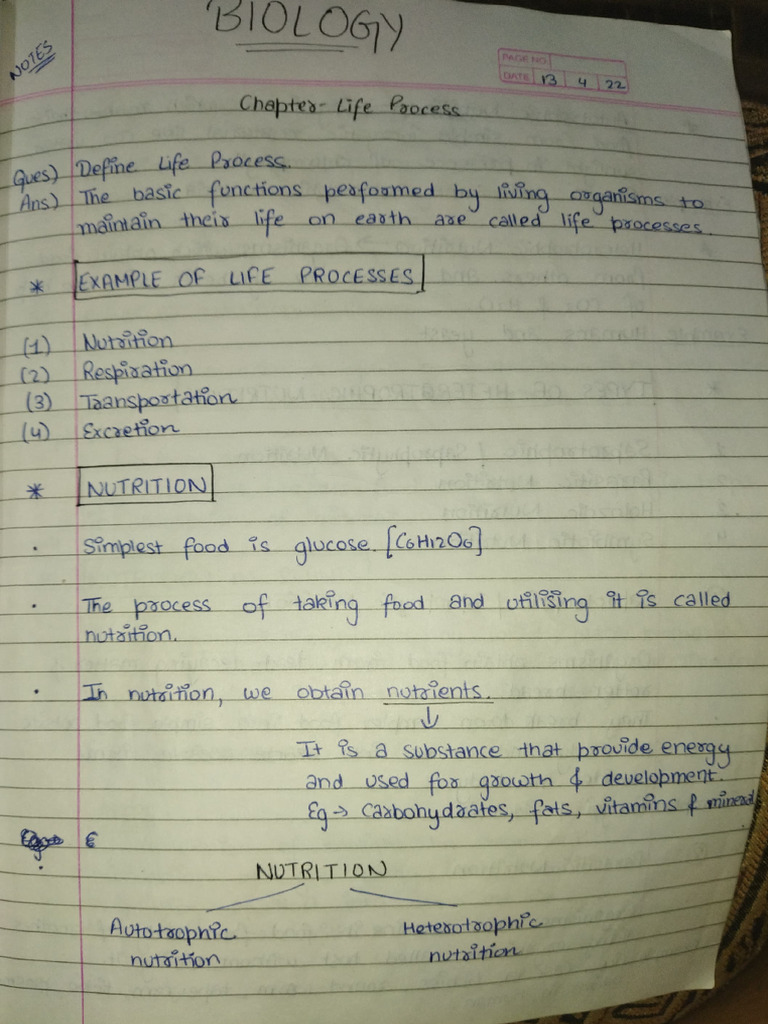 BIOLOGY
NOTES
PAGE NO.
DATE 13 4 22
Chapter- Life Process
Ques) Define Life Process.
Ans) The basic functions performed by living organisms to
maintain their life on earth are called life processes.
* EXAMPLE OF LIFE PROCESSES
(1) Nutrition
(2) Respiration
(3) Transportation
(4) Excretion
* NUTRITION
· Simplest food is glucose. [C6H12O6]
· The process of taking food and utilising it is called
nutrition.
· In nutrition, we obtain nutrients.
↓
It is a substance that provide energy
and used for growth & development.
Eg → Carbohydrates, fats, vitamins & mineral
NUTRITION
Autotrophic Heterotrophic
nutrition nutrition